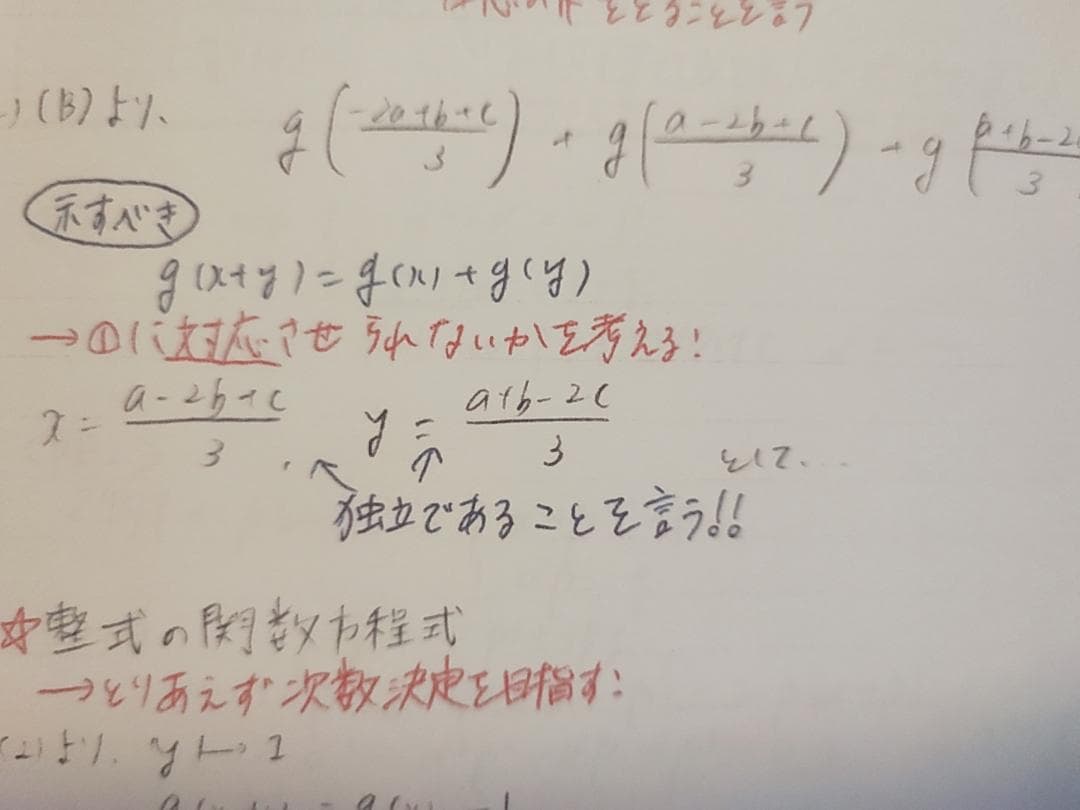 をとることを言う
(B)より、 g((-2a+b+c)/3) + g((a-2b+c)/3) + g((a+b-2c)/3
示すべき
g(x+y)=g(x)+g(y)
→①に対応させられないかを考える!
x = (a-2b+c)/3 , y = (a+b-2c)/3 として...
独立であることを言う!!
☆整式の関数方程式
→とりあえず次数決定を目指す!
(2)より、 y↦1